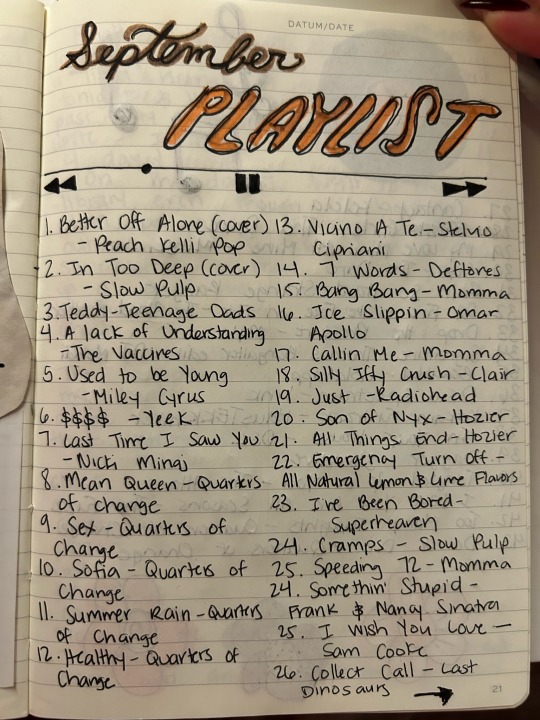 DATUM/DATE
September
PLAYLIST
1. Better Off Alone (cover)
- Peach Kelli Pop
2. In Too Deep (cover)
- Slow Pulp
3. Teddy - Teenage Dads
4. A lack of Understanding
- The Vaccines
5. Used to be Young
- Miley Cyrus
6. $$$$ - Yeek
7. Last Time I Saw You
- Nicki Minaj
8. Mean Queen - Quarters
of change
9. Sex - Quarters of
Change
10. Sofia - Quarters of
Change
11. Summer Rain - Quarters
of Change
12. Healthy - Quarters of
Change
13. Vicino A Te - Stelvio
Cipriani
14. 7 Words - Deftones
15. Bang Bang - Momma
16. Ice Slippin - Omar
Apollo
17. Callin Me - Momma
18. Silly Iffy Crush - Clair
19. Just - Radiohead
20. Son of Nyx - Hozier
21. All Things End - Hozier
22. Emergency Turn off -
All Natural Lemon & Lime Flavors
23. I've Been Bored -
Superheaven
24. Cramps - Slow Pulp
25. Speeding 72 - Momma
24. Somethin' Stupid -
Frank & Nancy Sinatra
25. I Wish You Love -
Sam Cooke
26. Collect Call - Last
Dinosaurs
21